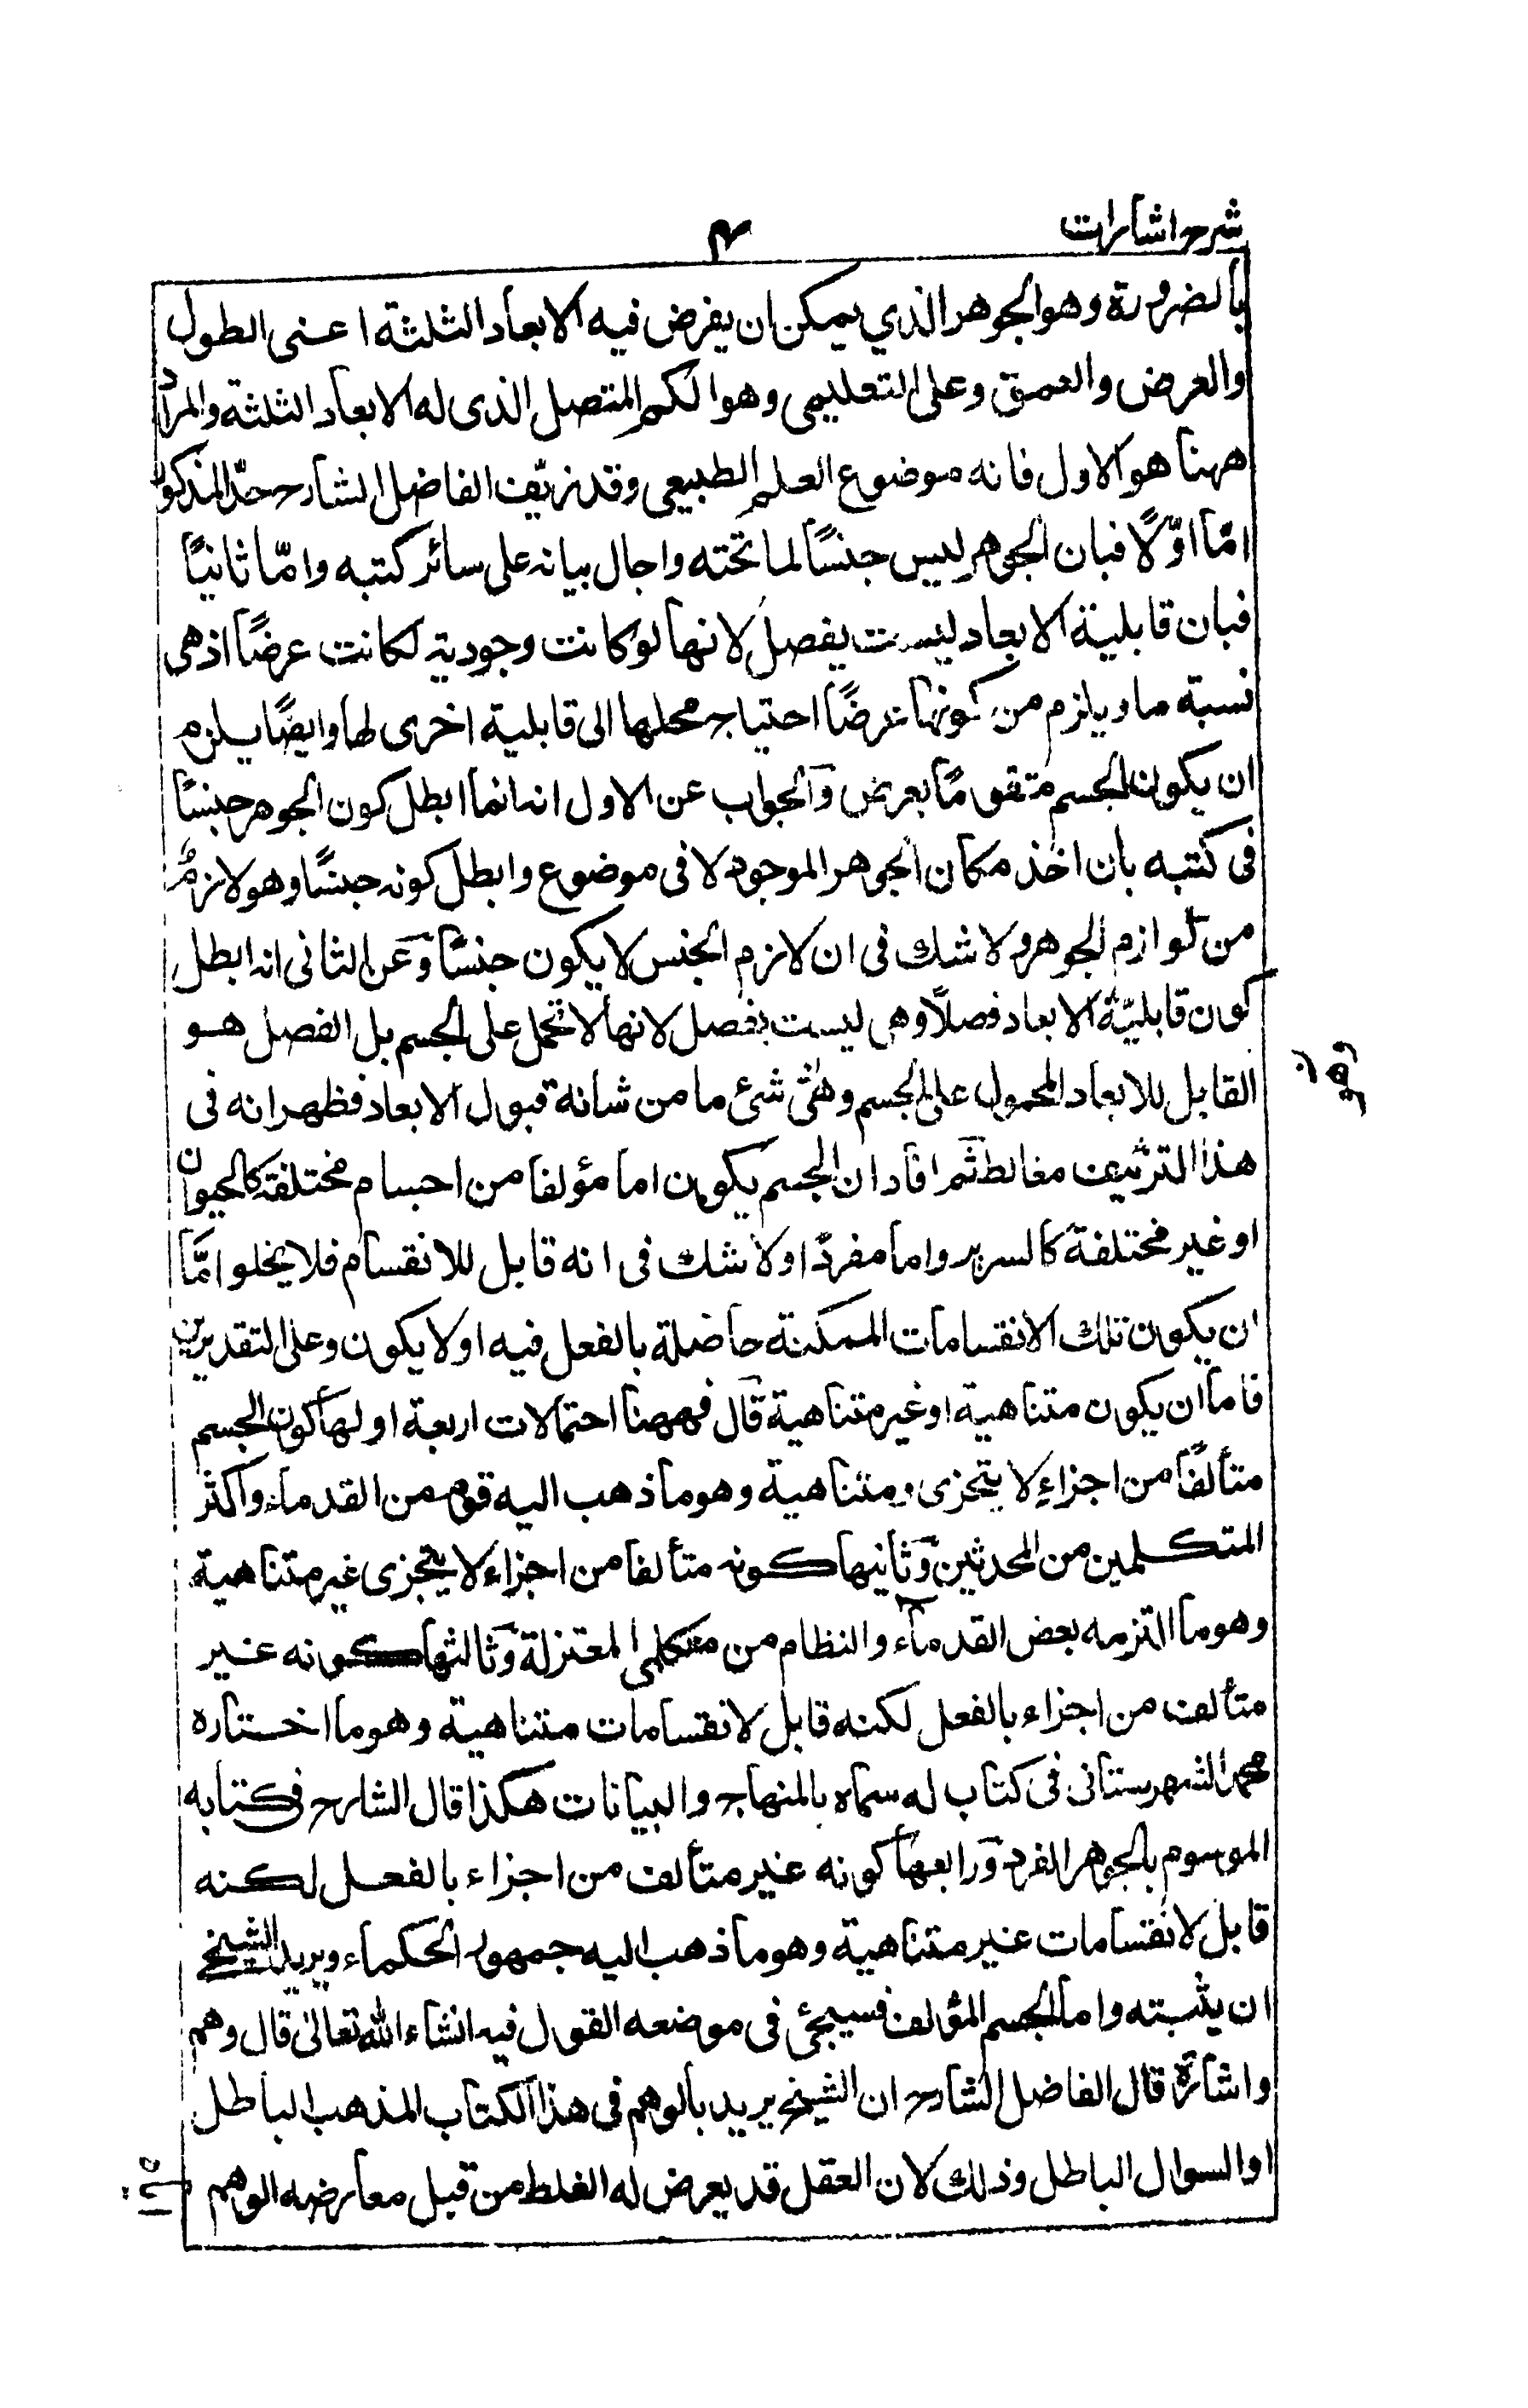 شرح اشارات
۴
بالضرورة وهو الجوهر الذي يمكن ان يفرض فيه الابعاد الثلثة اعنى الطول
والعرض والعمق وعلى التعليمى وهو الكم المتصل الذى له الابعاد الثلثة والمراد
ههنا هو الاول فانه موضوع العلم الطبيعى وقد زيّف الفاضل الشارح حدّ المذكور
امّا اوّلًا فبان الجوهر ليس جنسًا لما تحته واحال بيانه على سائر كتبه وامّا ثانيًا
فبان قابلية الابعاد ليست بفصل لانها لو كانت وجودية لكانت عرضًا اذ هى
نسبة ما ويلزم من كونها عرضًا احتياج محلها الى قابلية اخرى لها وايضًا يلزم
ان يكون الجسم متقومًا بعرض وآلجواب عن الاول انه انما ابطل كون الجوهر جنسًا
فى كتبه بان اخذ مكان الجوهر الموجود لا فى موضوع وابطل كونه جنسًا وهو لازمٌ
من لوازم الجوهر ولا شك فى ان لازم الجنس لا يكون جنسًا وعن الثانى انه ابطل
كون قابليّة الابعاد فصلًا وهى ليست بفصل لانها لا تحمل على الجسم بل الفصل هو
القابل للابعاد المحمول على الجسم وهى شئ ما من شانه قبول الابعاد فظهر انه فى
هذا التزييف مغالط ثم افاد ان الجسم يكون اما مؤلفا من اجسام مختلفة كالحيوان
او غير مختلفة كالسرير واما مفردًا ولا شك فى انه قابل للانقسام فلا يخلو امّا
ان يكون تلك الانقسامات الممكنة حاصلة بالفعل فيه او لا يكون وعلى التقديرين
فاما ان يكون متناهية او غير متناهية قال فههنا احتمالات اربعة اولها كون الجسم
متألفًا من اجزاءٍ لا يتجزى ومتناهية وهو ما ذهب اليه قوم من القدماء واكثر
المتكلمين من المحدثين وثانيها كونه متألفا من اجزاء لا يتجزى غير متناهية
وهو ما التزمه بعض القدماء والنظام من متكلمى المعتزلة وثالثها كونه غير
متألف من اجزاء بالفعل لكنه قابل لانقسامات متناهية وهو ما اختاره
محمد الشهرستانى فى كتاب له سماه بالمنهاج والبيانات هكذا قال الشارح فى كتابه
الموسوم بالجوهر الفرد ورابعها كونه غير متألف من اجزاء بالفعل لكنه
قابل لانقسامات غير متناهية وهو ما ذهب اليه جمهور الحكماء ويريد الشيخ
ان يثبته واما الجسم المؤلف فسيجئ فى موضعه القول فيه انشاء الله تعالى قال وهم
واشارة قال الفاضل الشارح ان الشيخ يريد بالوهم فى هذا الكتاب المذهب الباطل
او السوال الباطل وذلك لان العقل قد يعرض له الغلط من قبل معارضه الوهم